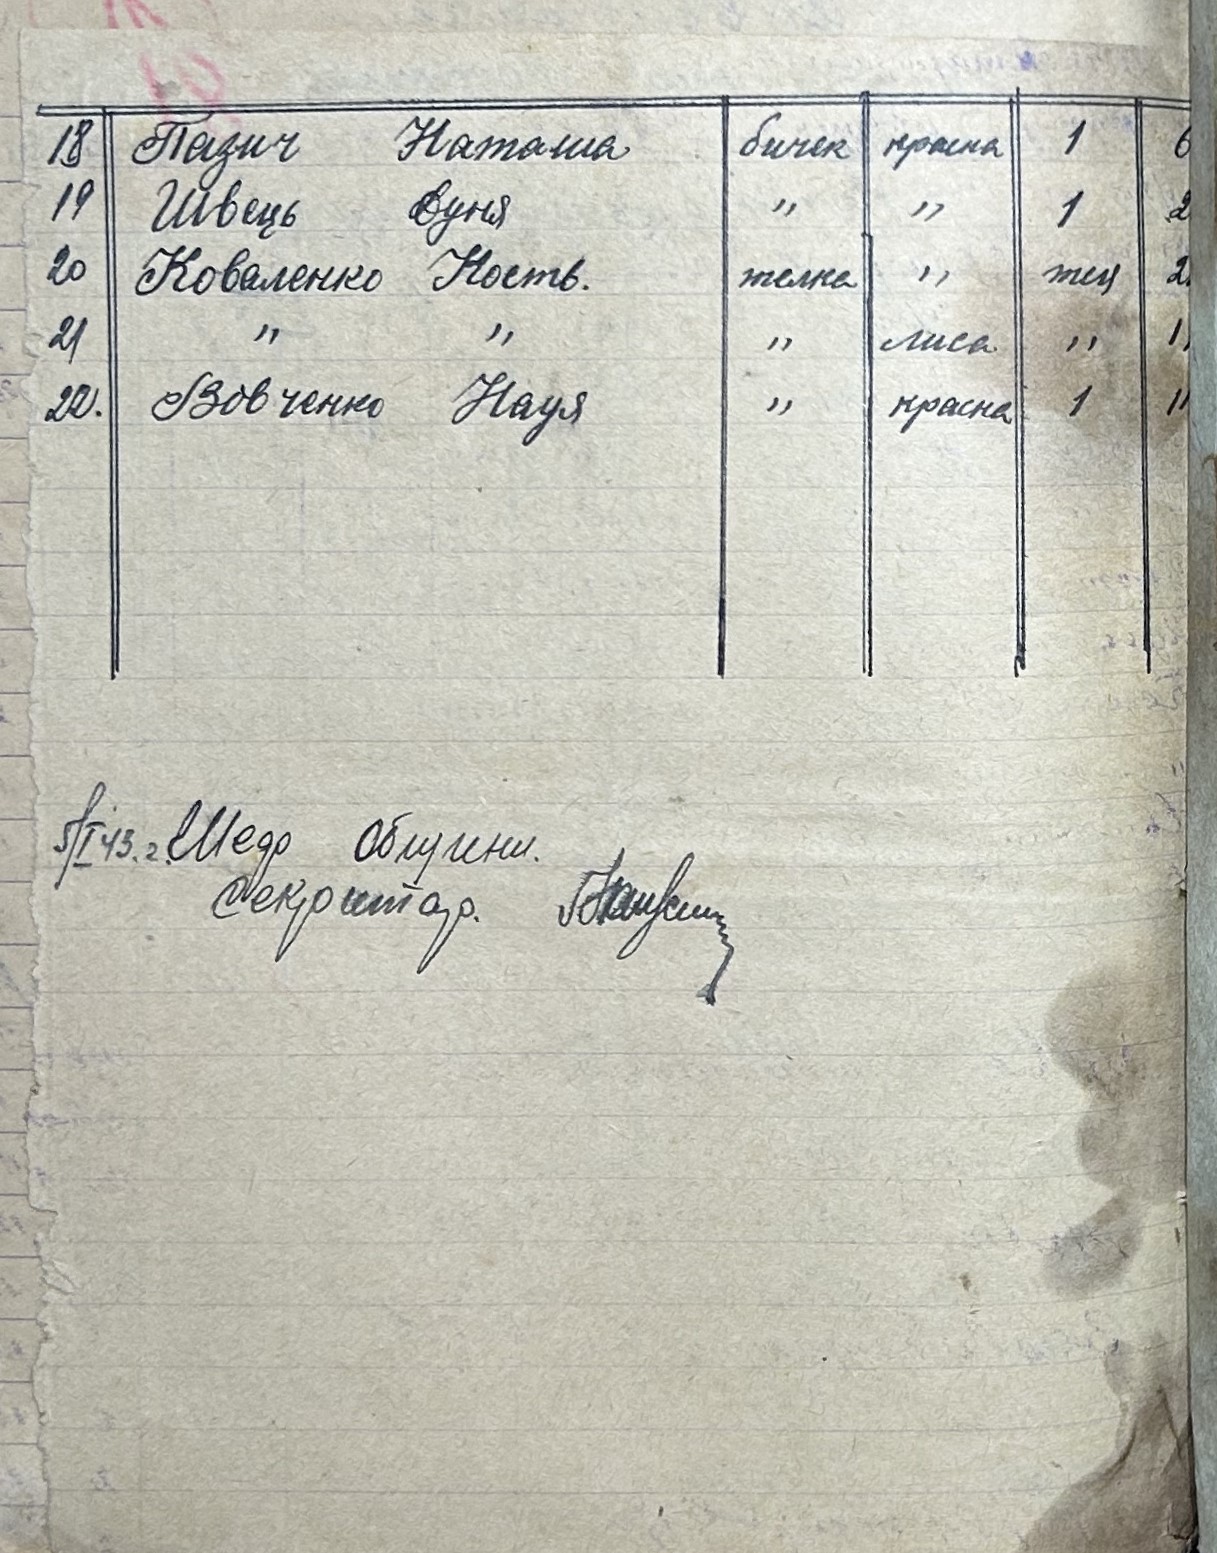 18 Пазич Наташа бичек красна 1 6
19 Швець Дуня " " 1 2
20 Коваленко Кость. телка " тец 2
21 " " " лиса " 1
22. Вовченко Надя " красна 1 11
5/I 43. г.
Секритар.